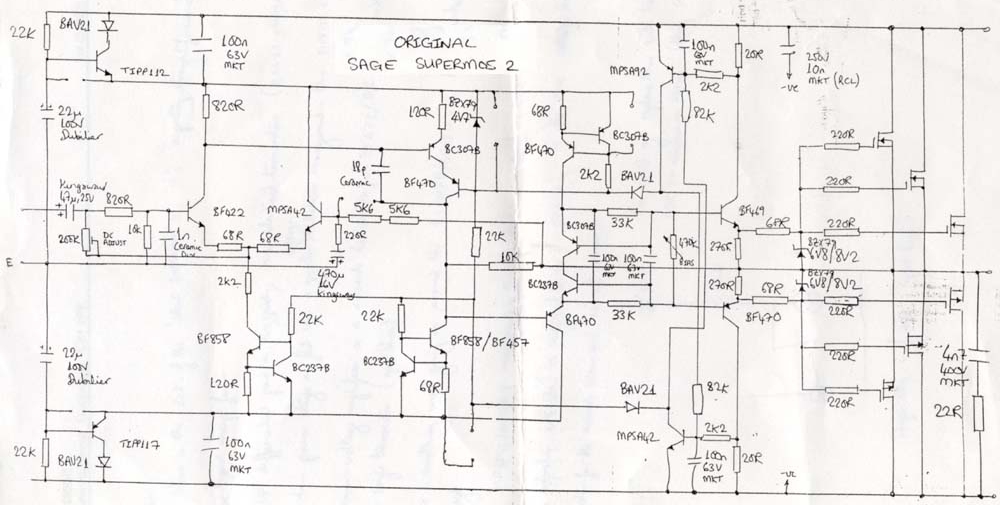 ORIGINAL
SAGE SUPERMOS 2
22K
BAV21
TIPP112
100n
63V
MKT
22µ
100V
Dubilier
820R
Kingsward
47µ, 25V
820R
DC
ADJUST
10K
1n
Ceramic
Disc
BF422
MPSA42
68R
68R
5K6
5K6
220R
470µ
16V
E
18p
Ceramic
120R
BZX79
4V7
BC307B
BF470
68R
BC307B
BF470
2K2
BAV21
MPSA92
100n
63V
MKT
2K2
82K
20R
-VE
250V
10n
MKT (RCL)
22K
10K
BC307B
33K
100n
63V
MKT
100n
63V
MKT
470K
BIAS
BC237B
33K
BF470
BF469
68R
270R
270R
68R
BF470
BZX79
6V8/8V2
BZX79
6V8/8V2
220R
220R
220R
220R
220R
220R
4n7
400V
MKT
22R
2K2
22K
BF858
BC237B
120R
22K
BF858/BF457
BC237B
68R
22µ
100V
Dubilier
22K
TIPP117
BAV21
100n
63V
MKT
BAV21
82K
MPSA42
2K2
100n
63V
MKT
20R
-VE